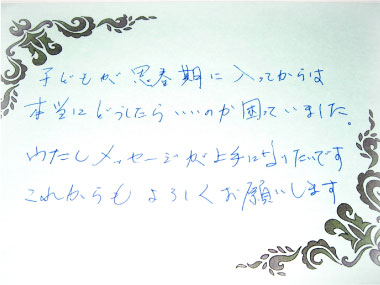 子どもが思春期に入ってからは
本当にどうしたらいいのか困っていました。
わたしメッセージが上手になりたいです
これからもよろしくお願いします